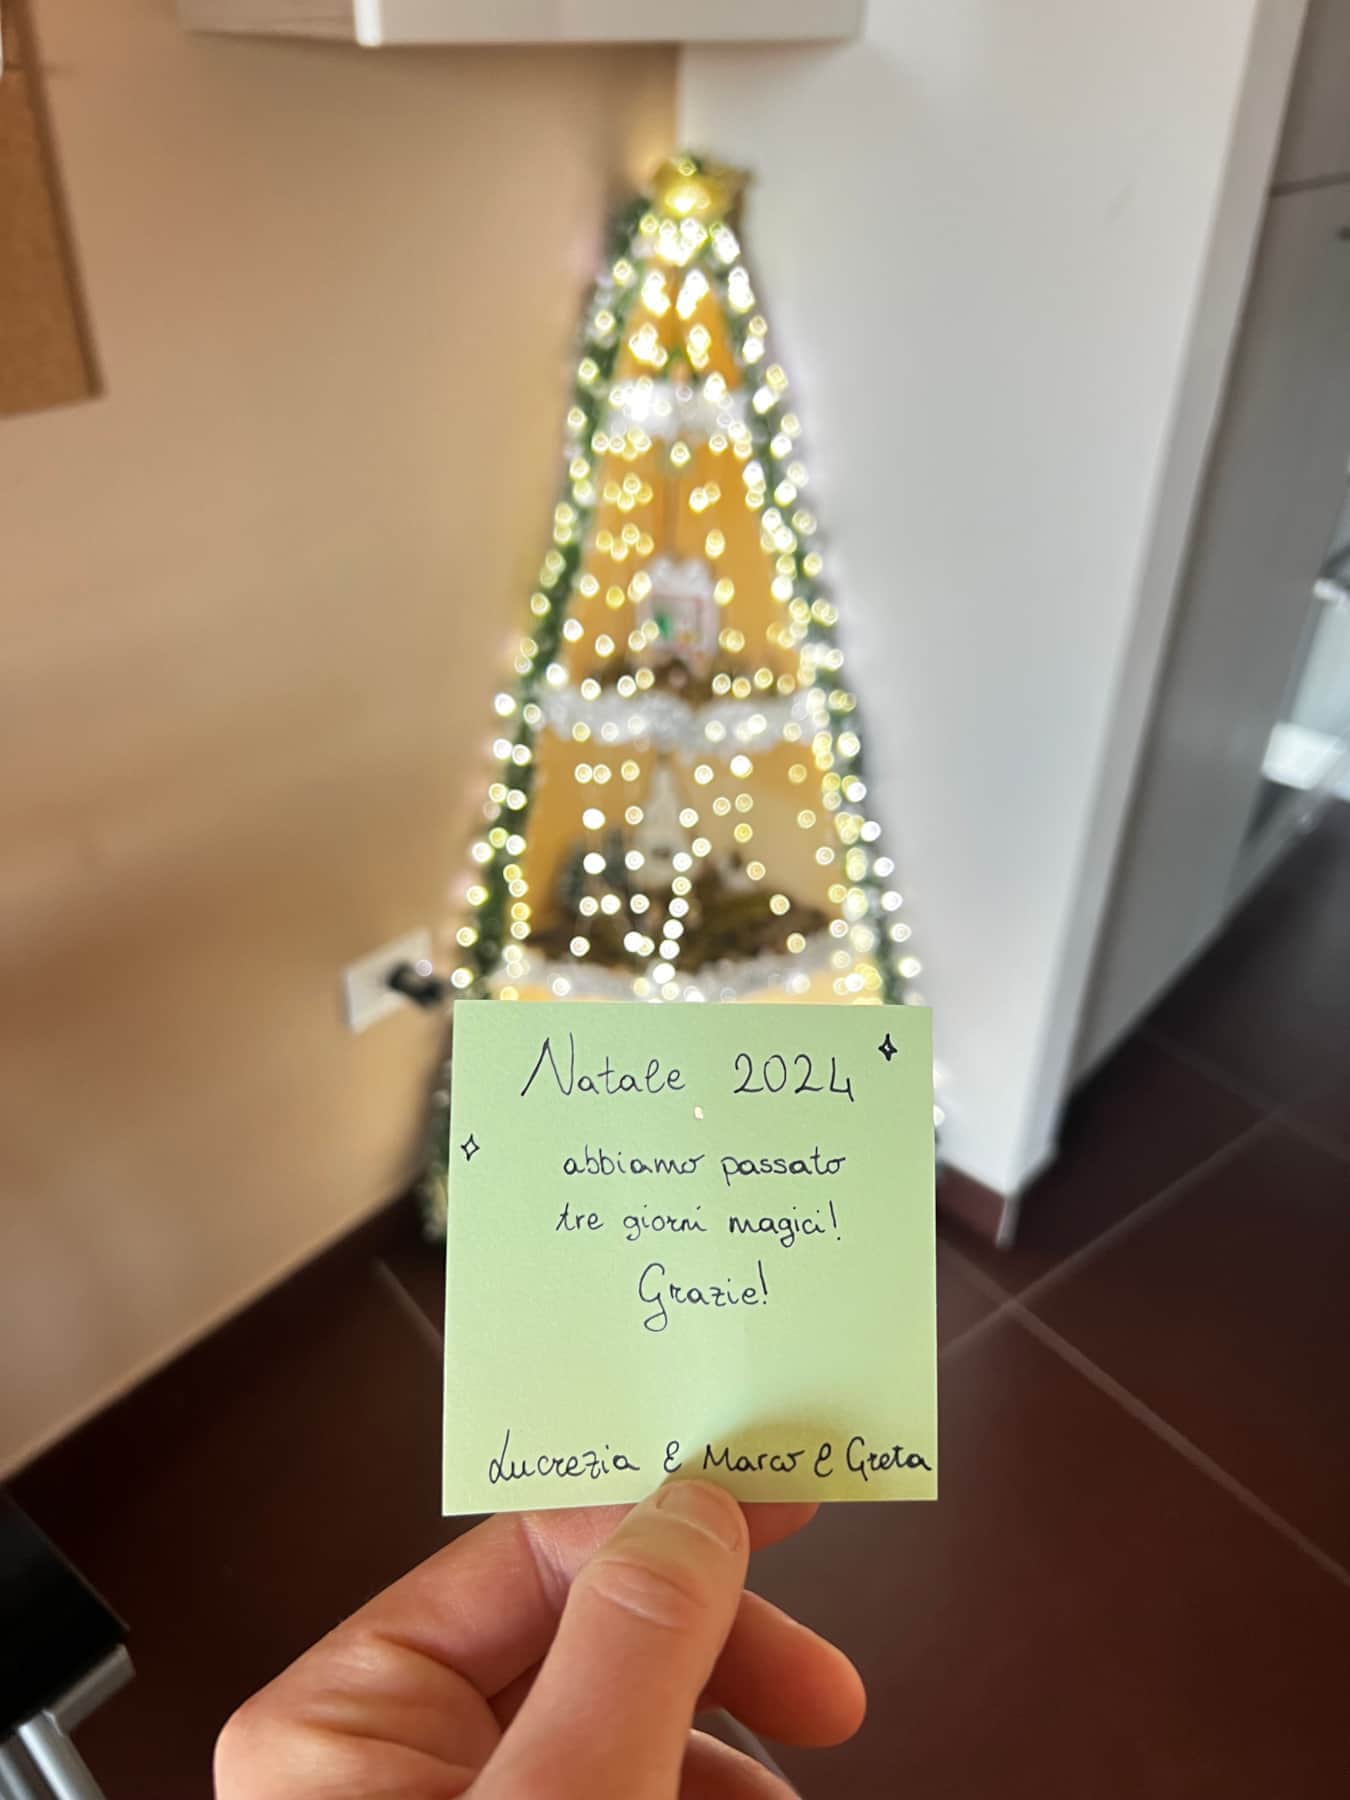 Natale 2024
abbiamo passato
tre giorni magici!
Grazie!
Lucrezia E Marco e Greta